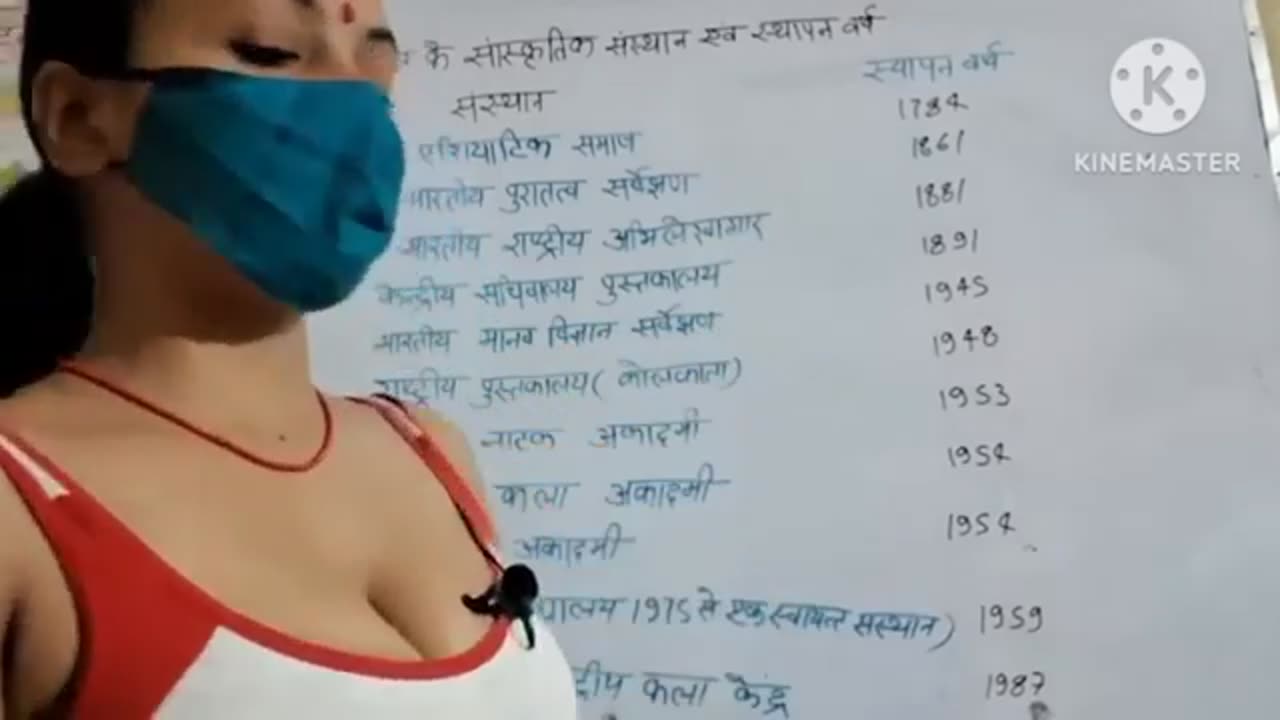 के सांस्कृतिक संस्थान एवं स्थापन वर्ष
संस्थान स्थापन वर्ष
एशियाटिक समाज 1784
भारतीय पुरातत्व सर्वेक्षण 1861
भारतीय राष्ट्रीय अभिलेखागार 1881
केन्द्रीय सचिवालय पुस्तकालय 1891
भारतीय मानव विज्ञान सर्वेक्षण 1945
राष्ट्रीय पुस्तकालय (कोलकाता) 1948
नाटक अकादमी 1953
कला अकादमी 1954
अकादमी 1954
1975 से एक स्वायत्त संस्थान) 1959
कला केंद्र 1987
K
KINEMASTER